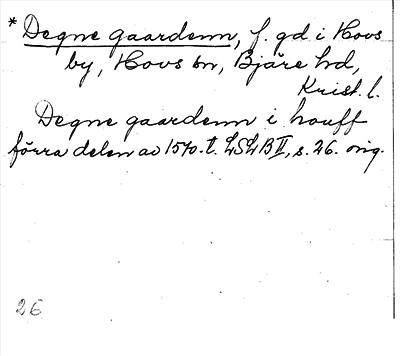 * Degne gaardenn, f. gd. i Hovs
by, Hovs sn, Bjäre hd,
Krist. l.
Degne gaardenn i houff
förra delen av 1570-t. LSLB II, s. 26. orig.
26